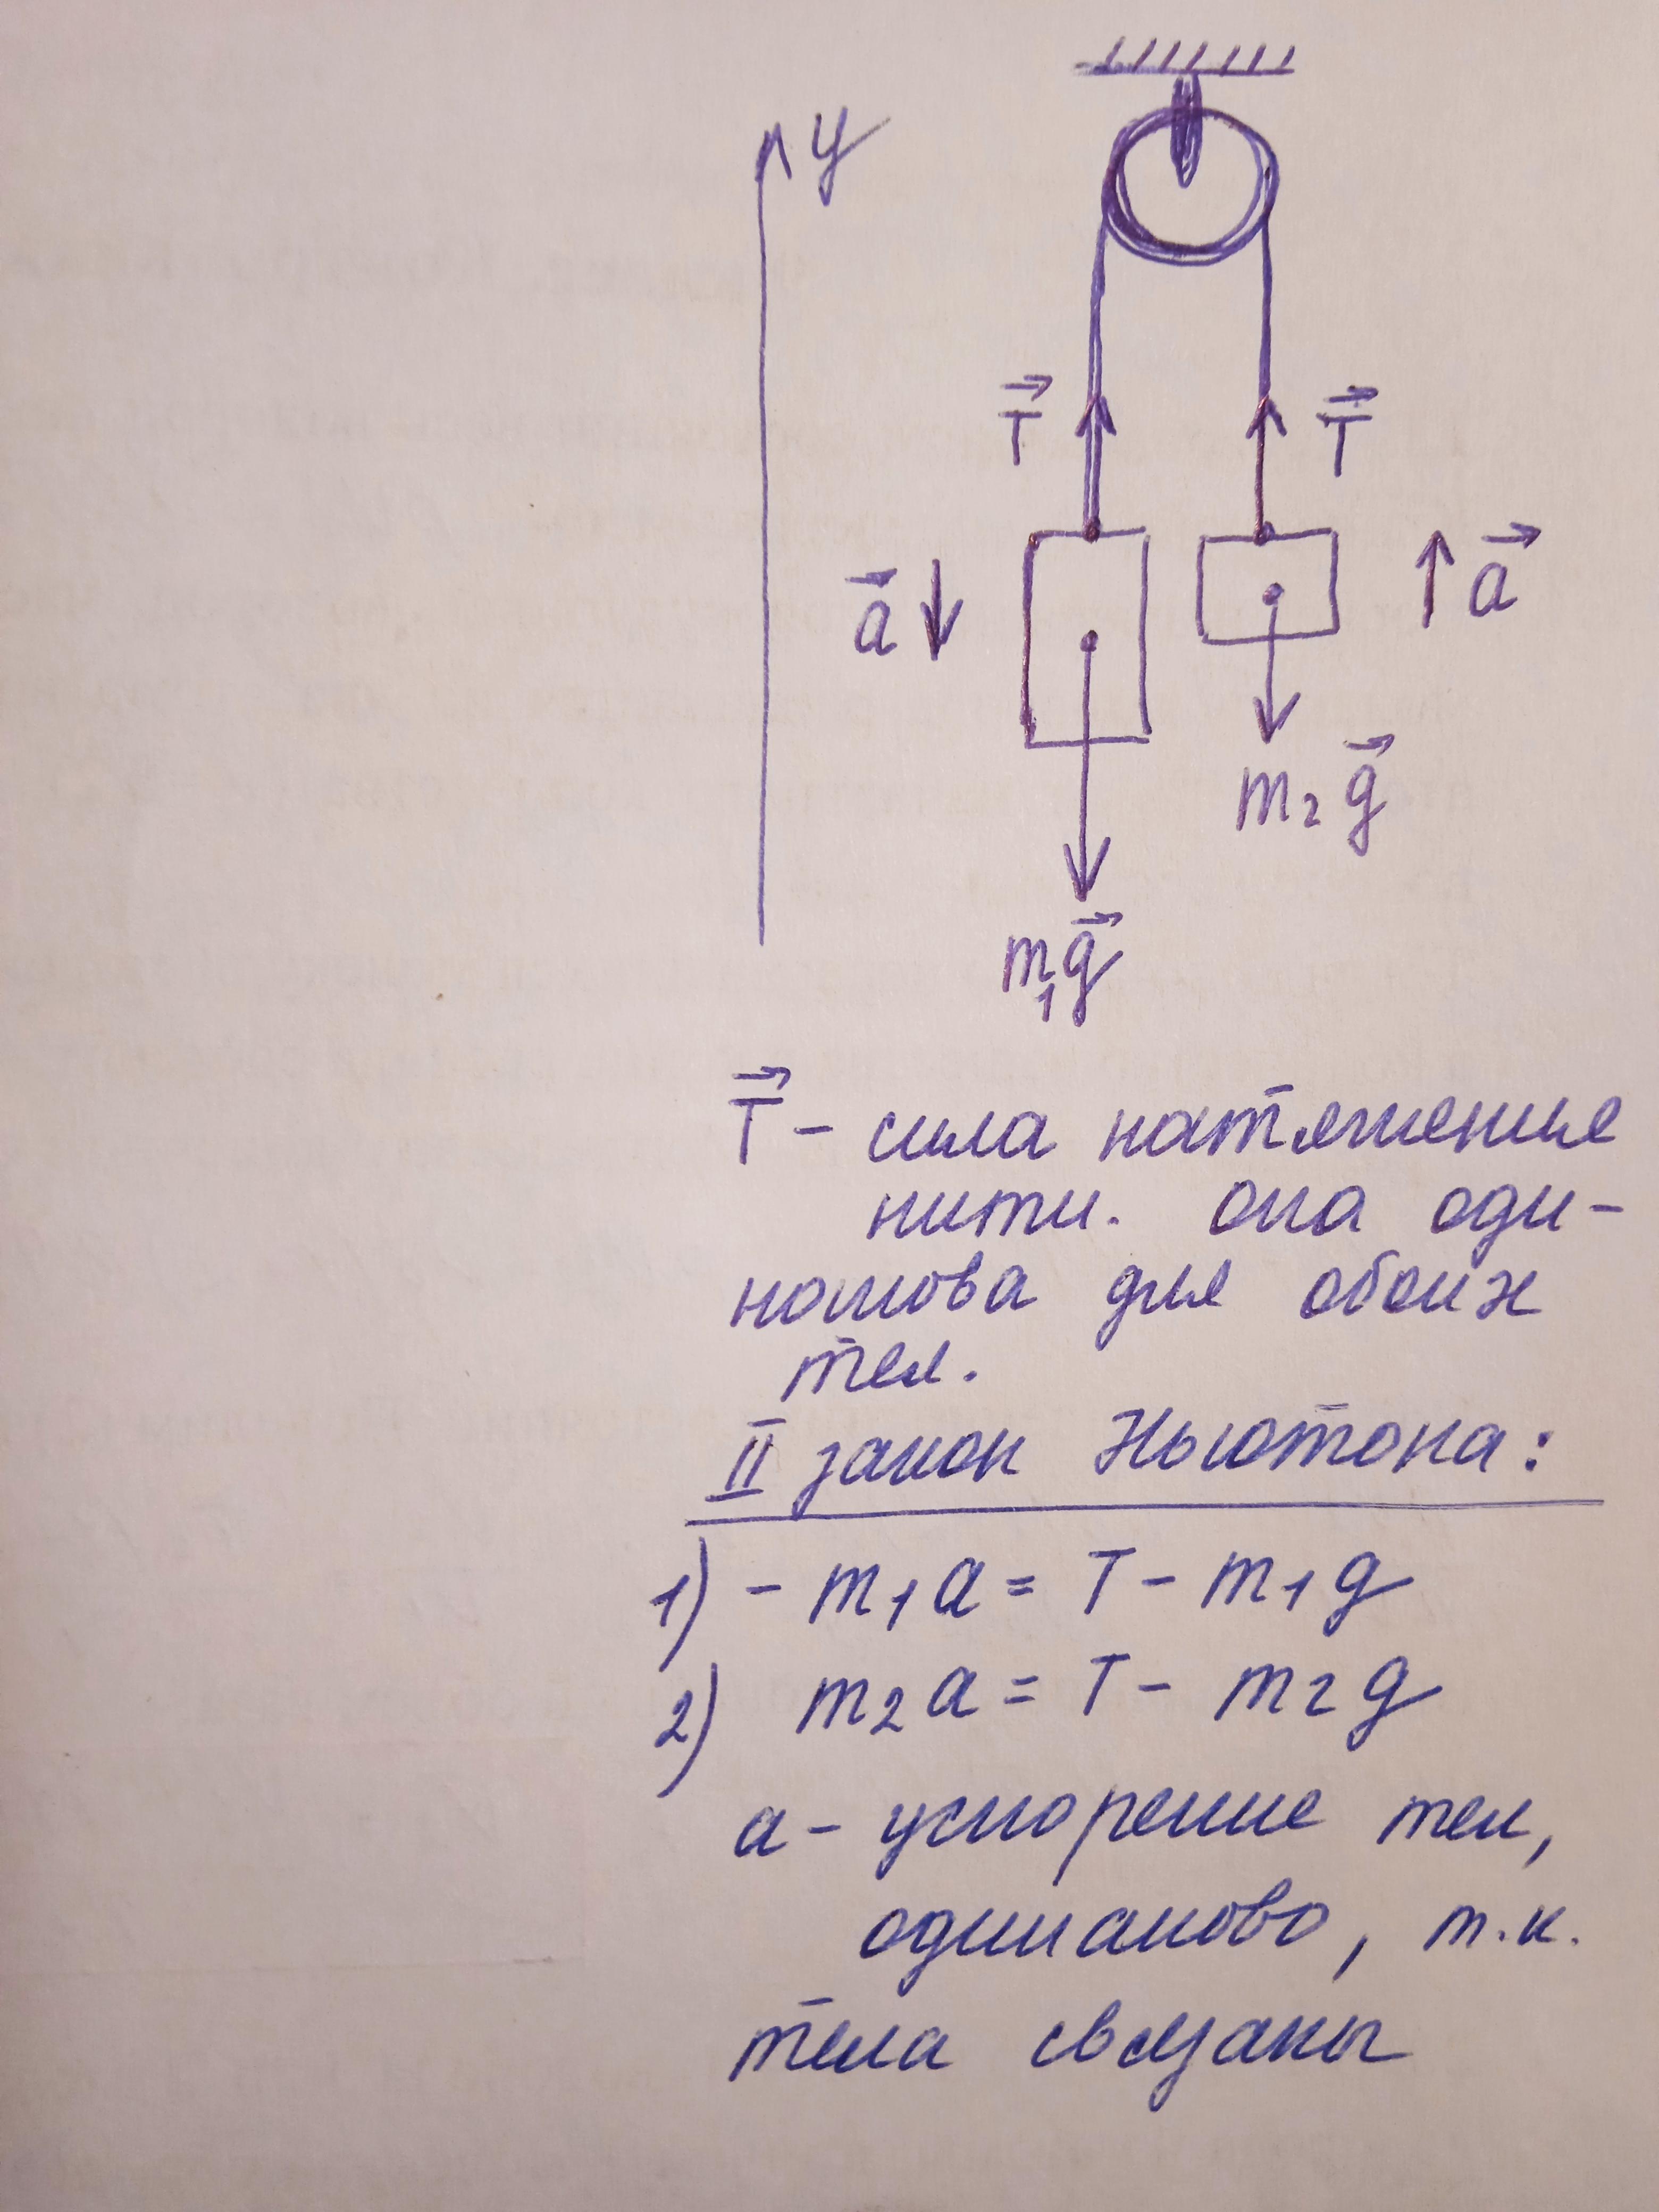 y
T T
a a
m₂g
m₁g
T – сила натяжения
нити. Она оди-
накова для обоих
тел.
II закон Ньютона:
1) - m₁a = T - m₁g
2) m₂a = T - m₂g
a – ускорение тел,
одинаково, т.к.
тела связаны